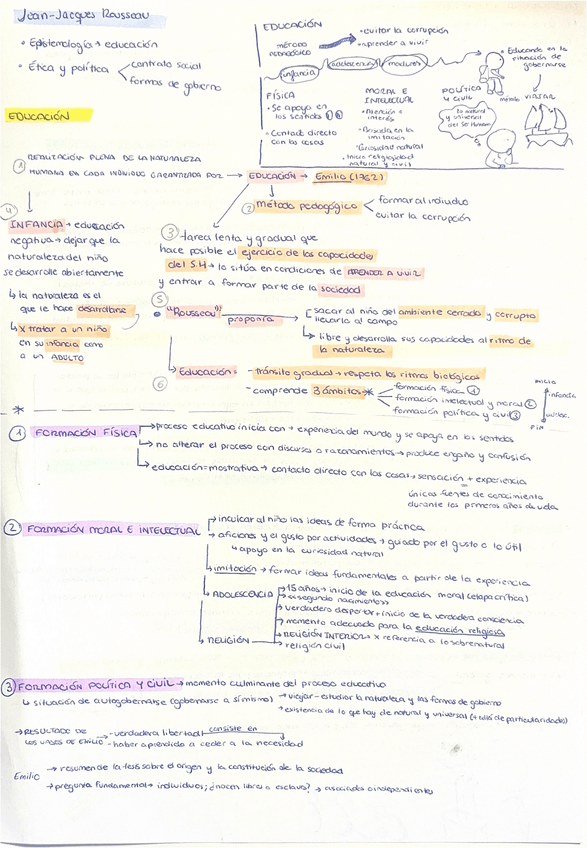 Jean-Jacques Rousseau
• Epistemología → educación
• Ética y política
contrato social
formas de gobierno
EDUCACIÓN
método pedagógico
• evitar la corrupción
• aprender a vivir
infancia
adolescencia
madurez
• Educando en la situación de gobernarse
FÍSICA
• Se apoya en
los sentidos
• Contacto directo
con las cosas
MORAL E
INTELECTUAL
• Atención e
interés
• Basada en la
imitación
• Curiosidad natural
• Inicio religiosidad
natural y civil
POLÍTICA
Y CIVIL
método
VIAJAR
Lo natural
y universal
del ser Humano
EDUCACIÓN
① REALIZACIÓN PLENA DE LA NATURALEZA
HUMANA EN CADA INDIVIDUO GARANTIZADA POR → EDUCACIÓN → Emilio (1762)
② método pedagógico
formar al individuo
evitar la corrupción
③ → tarea lenta y gradual que
hace posible el ejercicio de las capacidades
del S.H → lo sitúa en condiciones de APRENDER A VIVIR
y entrar a formar parte de la sociedad
④
INFANCIA → educación
negativa → dejar que la
naturaleza del niño
se desarrolle abiertamente
↳ la naturaleza es el
que le hace desarrollarse
↳ x tratar a un niño
en su infancia como
a un ADULTO
⑤
• "Rousseau" proponía
sacar al niño del ambiente cerrado y corrupto
llevarlo al campo
↳ libre y desarrolla sus capacidades al ritmo de
la naturaleza
⑥
Educación:
- tránsito gradual → respeta los ritmos biológicos
- comprende 3 ámbitos *
formación física ①
formación intelectual y moral ②
formación política y civil ③
inicio
infancia
adolesc.
FIN
*
① FORMACIÓN FÍSICA
→ proceso educativo inicia con → experiencia del mundo y se apoya en los sentidos
→ no alterar el proceso con discursos o razonamientos → produce engaño y confusión
→ educación = mostrativa → contacto directo con las cosas → sensación + experiencia
=
únicas fuentes de conocimiento
durante los primeros años de vida
② FORMACIÓN MORAL E INTELECTUAL
→ inculcar al niño las ideas de forma práctica
→ aficiones y el gusto por actividades → guiado por el gusto o lo útil
↳ apoyo en la curiosidad natural
→ imitación → formar ideas fundamentales a partir de la experiencia
→ ADOLESCENCIA
→ 15 años → inicio de la educación moral (etapa crítica)
→ «segundo nacimiento»
→ verdadero despertar + inicio de la verdadera conciencia
→ momento adecuado para la educación religiosa
→ RELIGIÓN
→ RELIGIÓN INTERIOR → x referencia a lo sobrenatural
→ religión civil
③ FORMACIÓN POLÍTICA Y CIVIL → momento culminante del proceso educativo
↳ situación de autogobernarse (gobernarse a sí mismo)
→ viajar - estudiar la naturaleza y las formas de gobierno
→ existencia de lo que hay de natural y universal (+ allá de particularidades)
→ RESULTADO DE
LOS VIAJES DE EMILIO
- verdadera libertad consiste en
- haber aprendido a ceder a la necesidad
Emilio
→ resumen de la tesis sobre el origen y la constitución de la sociedad
→ pregunta fundamental → individuos; ¿nacen libres o esclavos? → asociados o independientes